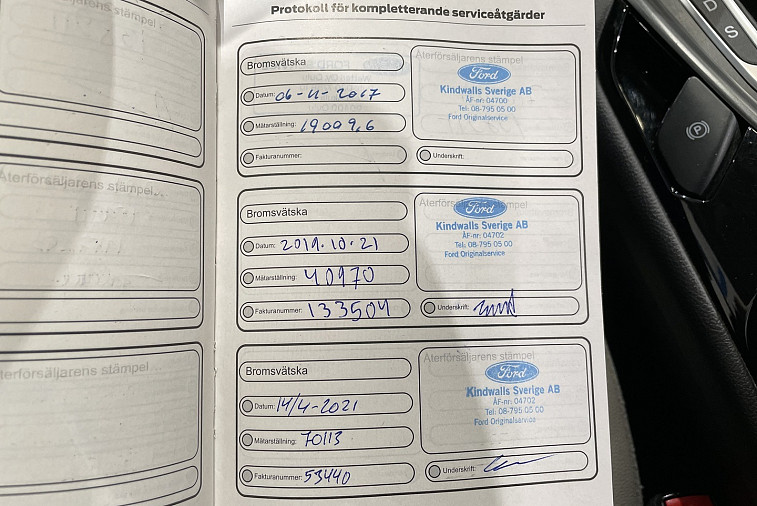 Återförsäljarens stämpel
Återförsäljarens stämpel
Protokoll för kompletterande serviceåtgärder
Bromsvätska
Datum: 06-11-2017
Mätarställning: 19009,6
Fakturanummer:
Återförsäljarens stämpel
Ford
Kindwalls Sverige AB
ÅF-nr: 04700
Tel: 08-795 05 00
Ford Originalservice
Underskrift:
Bromsvätska
Datum: 2019.10.21
Mätarställning: 40970
Fakturanummer: 133504
Återförsäljarens stämpel
Ford
Kindwalls Sverige AB
ÅF-nr: 04702
Tel: 08-795 05 00
Ford Originalservice
Underskrift:
Bromsvätska
Datum: 14/4-2021
Mätarställning: 70113
Fakturanummer: 53440
Återförsäljarens stämpel
Ford
Kindwalls Sverige AB
ÅF-nr: 04702
Tel: 08-795 05 00
Ford Originalservice
Underskrift:
D
S
P